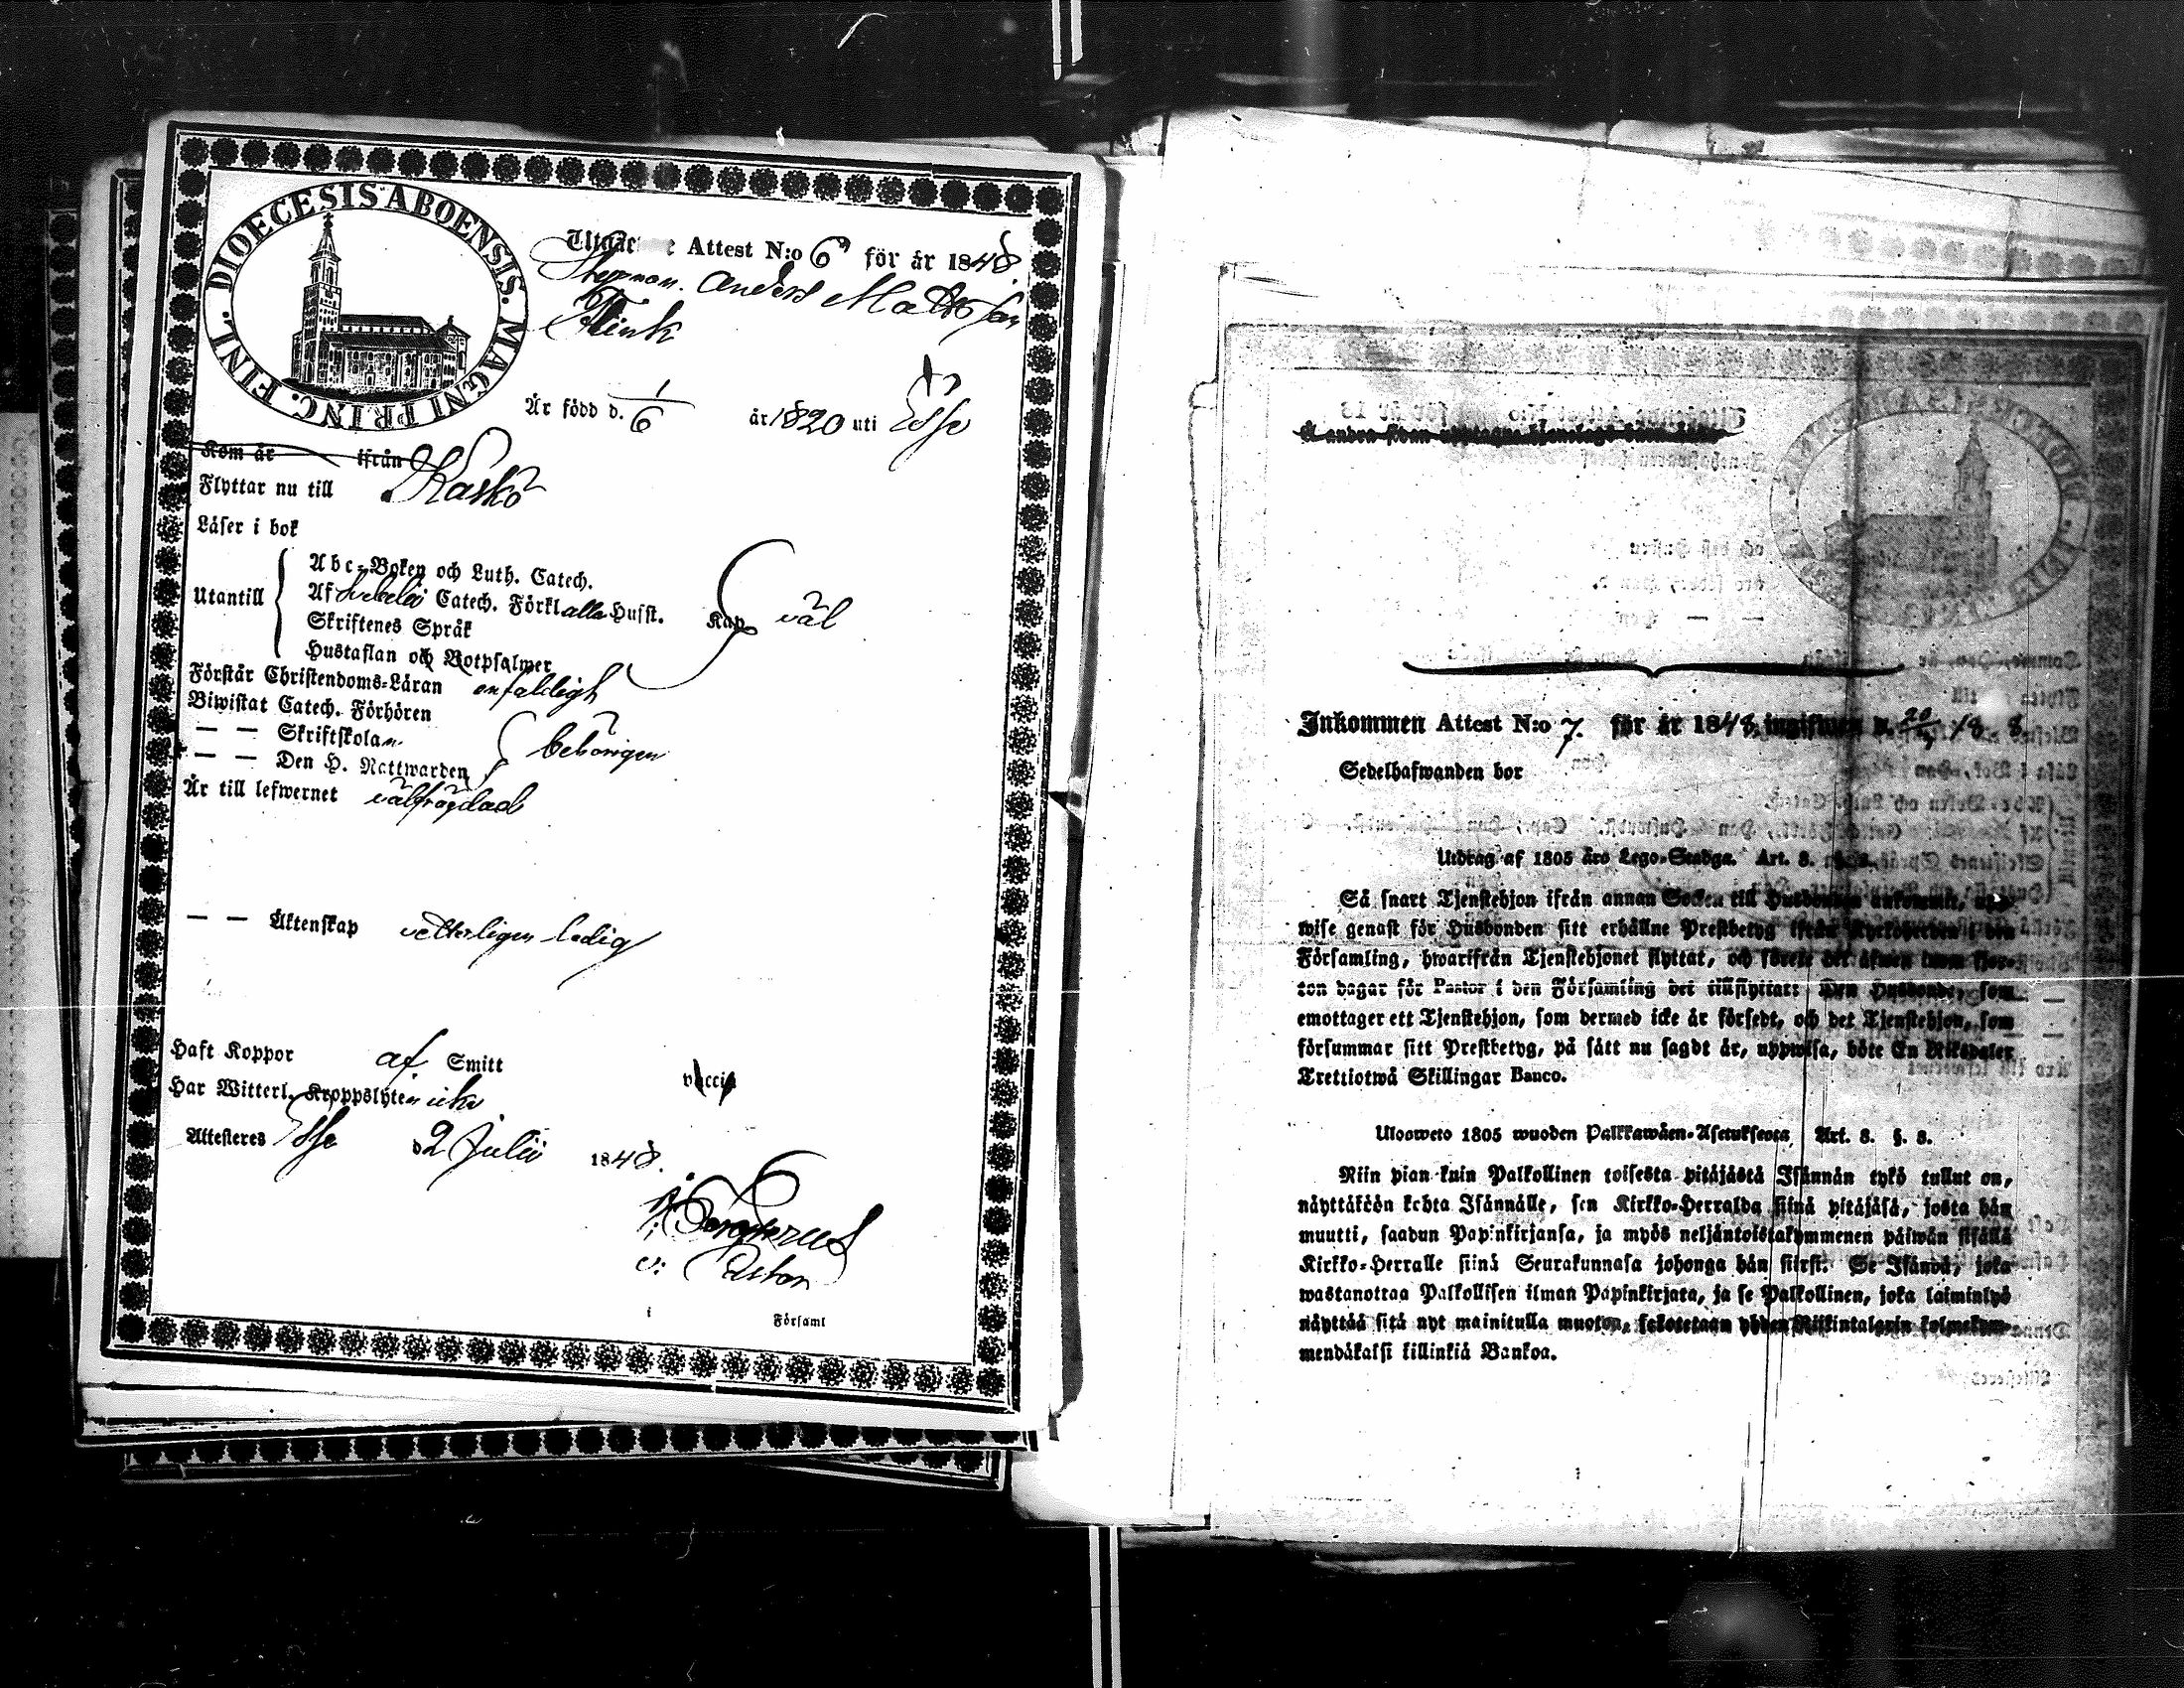 DIOECESIS ABOENSIS. MAGNI PRINC. FINL.
Attest N:o 6 för år 1848.
Anders Matts son
Flink
Är född d. 1/6 år 1820 uti Esse
Kom år ifrån
Flyttar nu till Kaskö
Läser i bok
Utantill
Abc-Boken och Luth. Catech.
Af Svebelii Catech. Förkl alla Husst. Kap väl
Skriftenes Språk
Hustaflan och Botpsalmer
Förstår Christendoms-Läran enfaldigt
Biwistat Catech. Förhören
— — Skriftskolan behörigen
— — Den H. Nattwarden
Är till lefwernet välfrägdad
— — Äktenskap vetterligen ledig
Haft Koppor af Smitt vaccin
Har Witterl. Kroppslyten icke
Attesteres Esse d 2 Julii 1848.
v: Pastor
i Församl
Inkommen Attest N:o 7. för år 1848, ingifwen d. 18 8
Sedelhafwanden bor
Utdrag af 1805 års Lego-Stadga. Art. 8.
Så snart Tjenstehjon ifrån annan Socken till Husbonden ankommit, upp-
wise genast för Husbonden sitt erhållne Prestbetyg ifrån Kyrkoherden i den
Församling, hwarifrån Tjenstehjonet flyttat, och förete det äfwen inom fjor-
ton dagar för Pastor i den Församling det tillflyttar: Den Husbonde, som
emottager ett Tjenstehjon, som dermed icke är försedt, och det Tjenstehjon, som
försummar sitt Prestbetyg, på sätt nu sagdt är, uppwisa, böte En Riksdaler
Trettiotwå Skillingar Banco.
Ulosweto 1805 wuoden Palkkawäen-Asetuksesta, Art. 8. §. 8.
Niin pian kuin Palkollinen toisesta pitäjästä Isännän tykö tullut on,
näyttäköön kohta Isännälle, sen Kirkko-Herralda siinä pitäjäsä, josta hän
muutti, saadun Papinkirjansa, ja myös neljäntoistakymmenen päiwän sisällä
Kirkko-Herralle siinä Seurakunnasa johonga hän siirsi. Se Isändä, joka
wastanottaa Palkollisen ilman Papinkirjata, ja se Palkollinen, joka laiminlyö
näyttää sitä nyt mainitulla muoton, sakotetaan yhden Riikintalarin kolmekym-
mendäkaksi killinkiä Bankoa.